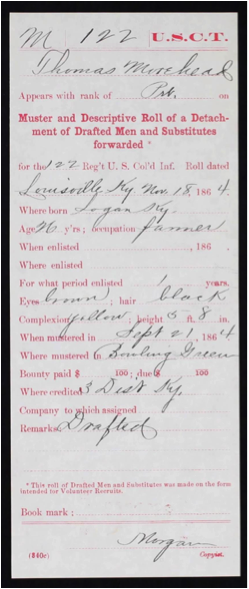 M | 122 | U.S.C.T.
Thomas Morehead
Appears with rank of Prt. on
Muster and Descriptive Roll of a Detach-
ment of Drafted Men and Substitutes
forwarded *
for the 122 Reg't U. S. Col'd Inf. Roll dated
Louisville Ky. Nov. 18, 1864.
Where born Logan Ky.
Age 26 y'rs; occupation farmer
When enlisted , 186 .
Where enlisted
For what period enlisted 1 years.
Eyes brown; hair black
Complexion yellow; height 5 ft. 8 in.
When mustered in Sept 21, 1864
Where mustered in Bowling Green
Bounty paid $ 100; due $ 100
Where credited 3 Dist Ky.
Company to which assigned
Remarks: Drafted
* This roll of Drafted Men and Substitutes was made on the form
intended for Volunteer Recruits.
Book mark:
Morgan
(340c) Copyist.